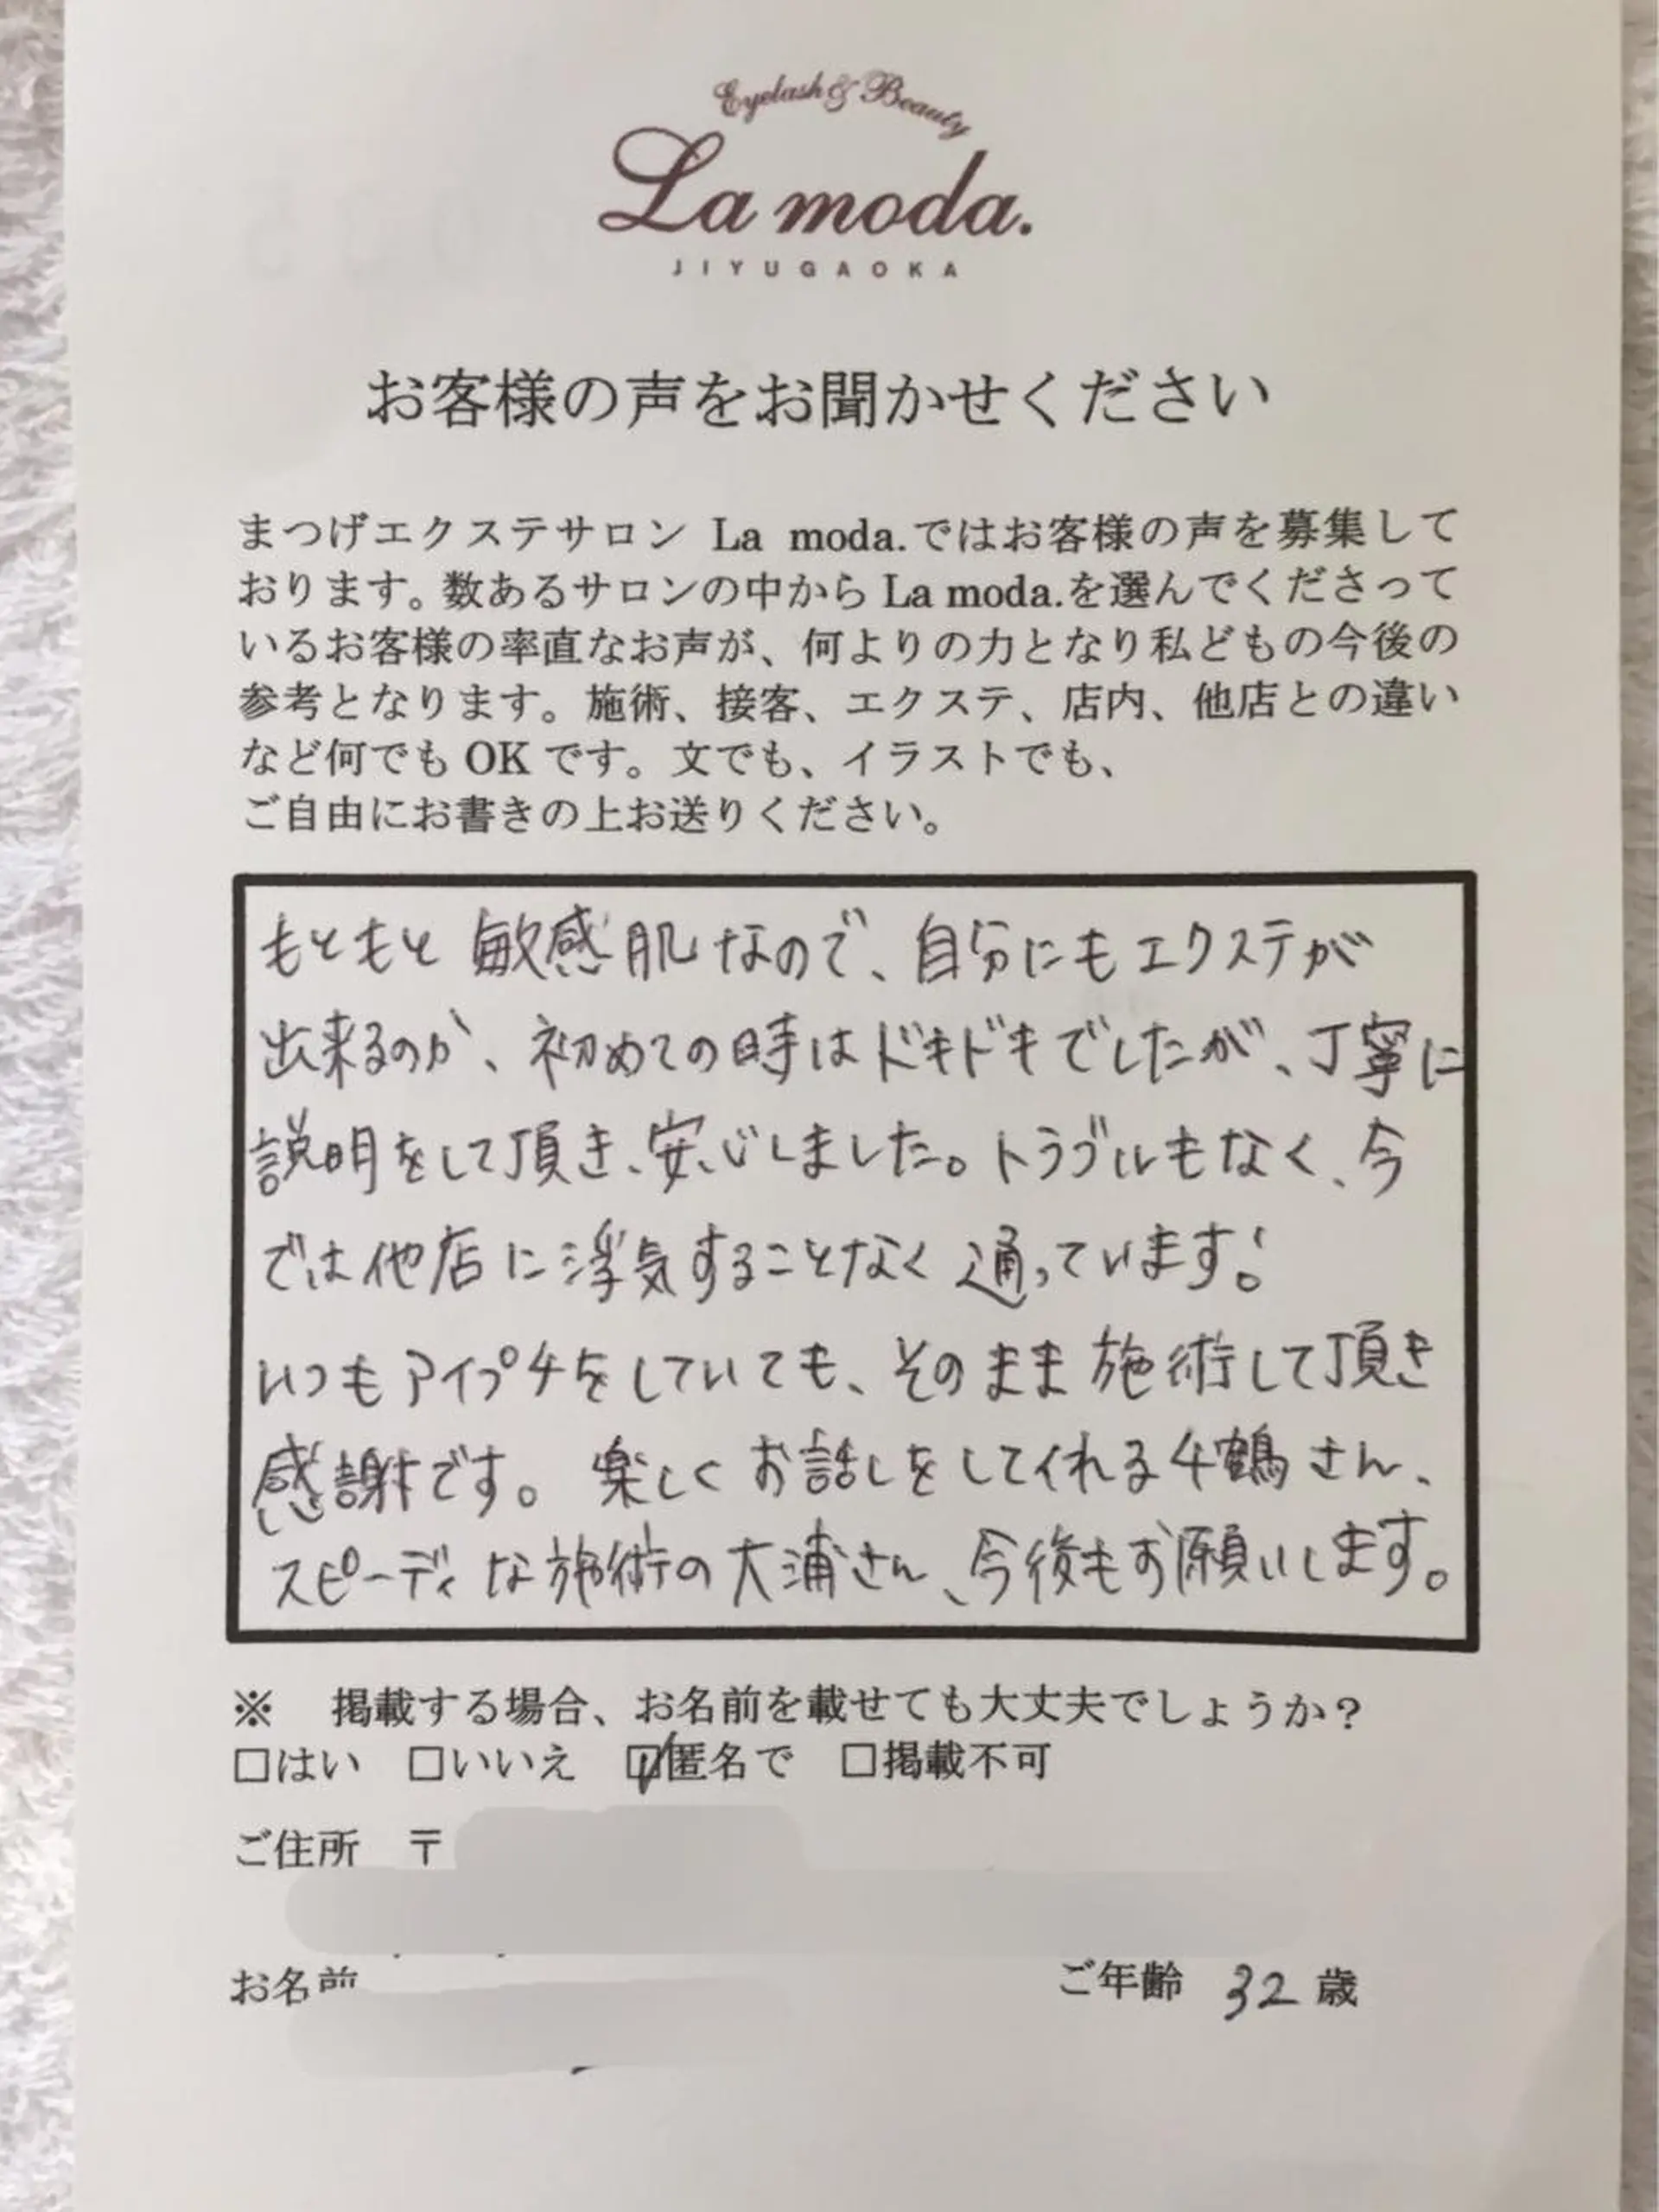 Eyelash & Beauty
La moda.
JIYUGAOKA
お客様の声をお聞かせください
まつげエクステサロン La moda.ではお客様の声を募集して
おります。数あるサロンの中から La moda.を選んでくださって
いるお客様の率直なお声が、何よりの力となり私どもの今後の
参考となります。施術、接客、エクステ、店内、他店との違い
など何でも OK です。文でも、イラストでも、
ご自由にお書きの上お送りください。
もともと敏感肌なので、自分にもエクステが
出来るのか、初めての時はドキドキでしたが、丁寧に
説明をして頂き、安心しました。トラブルもなく、今
では他店に浮気することなく通っています!
いつもアイプチをしていても、そのまま施術して頂き
感謝です。楽しくお話しをしてくれる千鶴さん、
スピーディな施術の大浦さん、今後もお願いします。
※ 掲載する場合、お名前を載せても大丈夫でしょうか?
□はい □いいえ ☑匿名で □掲載不可
ご住所 〒
お名前 ご年齢 32 歳